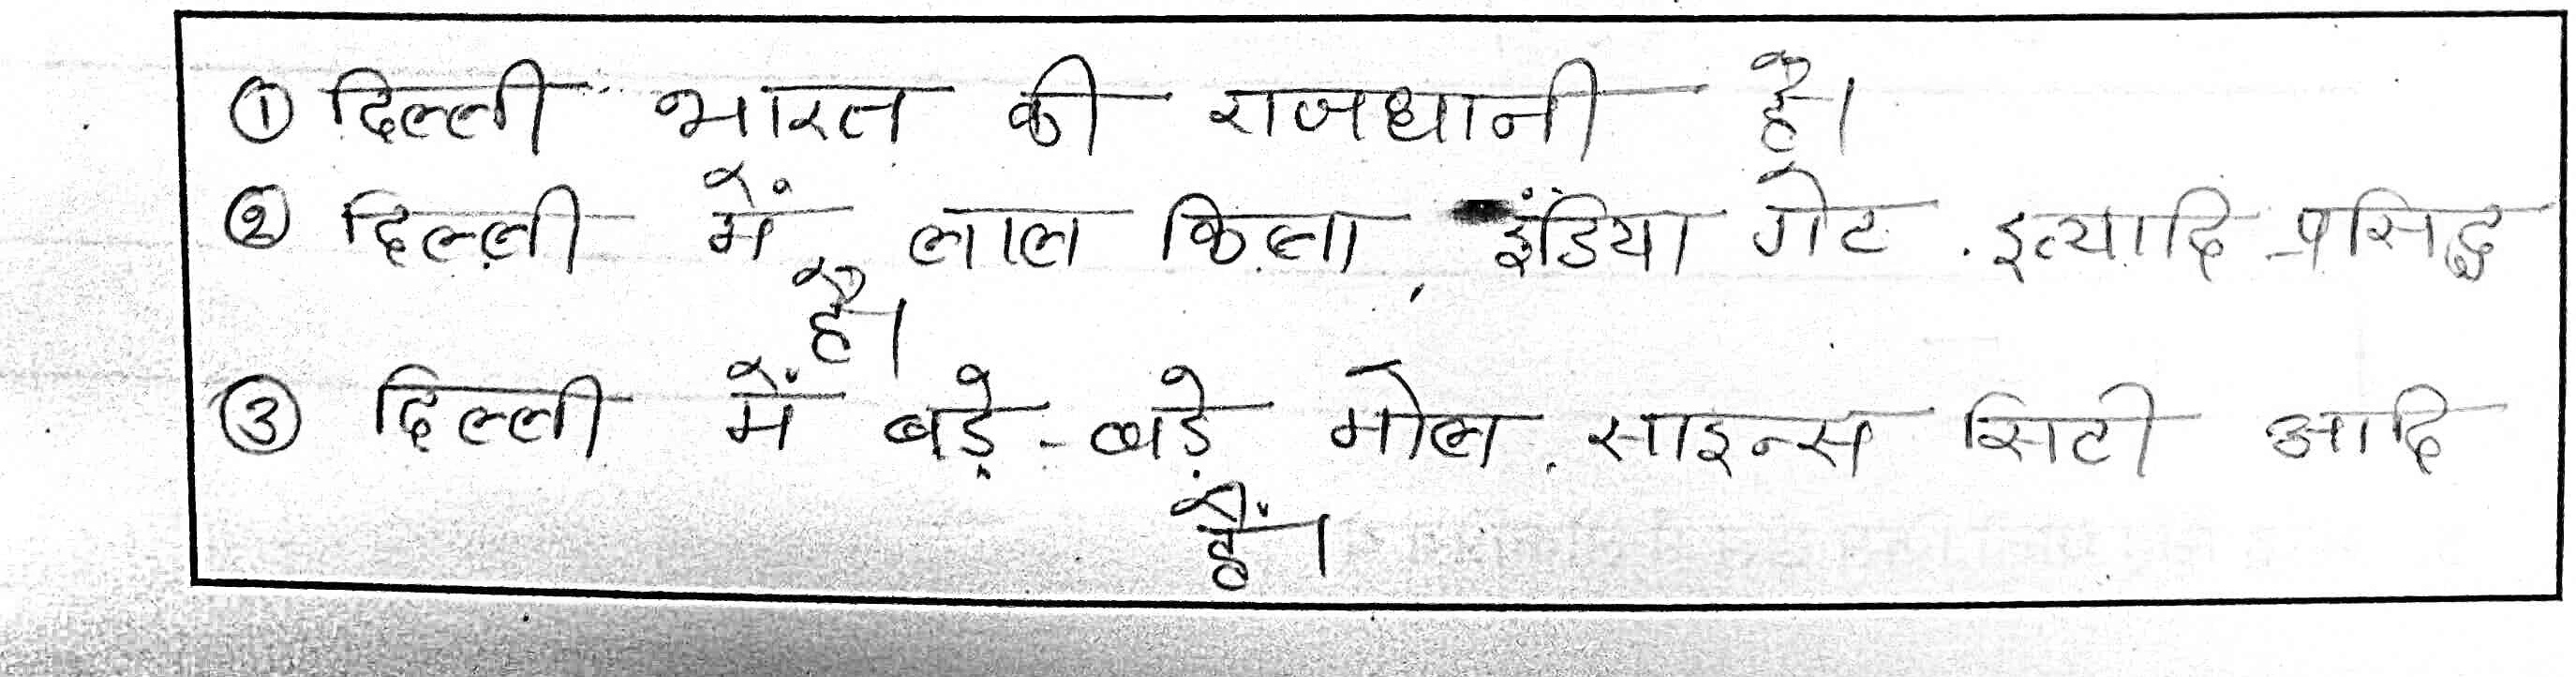 ① दिल्ली भारत की राजधानी है।
② दिल्ली में लाल किला, इंडिया गेट, इत्यादि प्रसिद्ध
है।
③ दिल्ली में बड़े-बड़े मोल, साइन्स सिटी आदि
हैं।